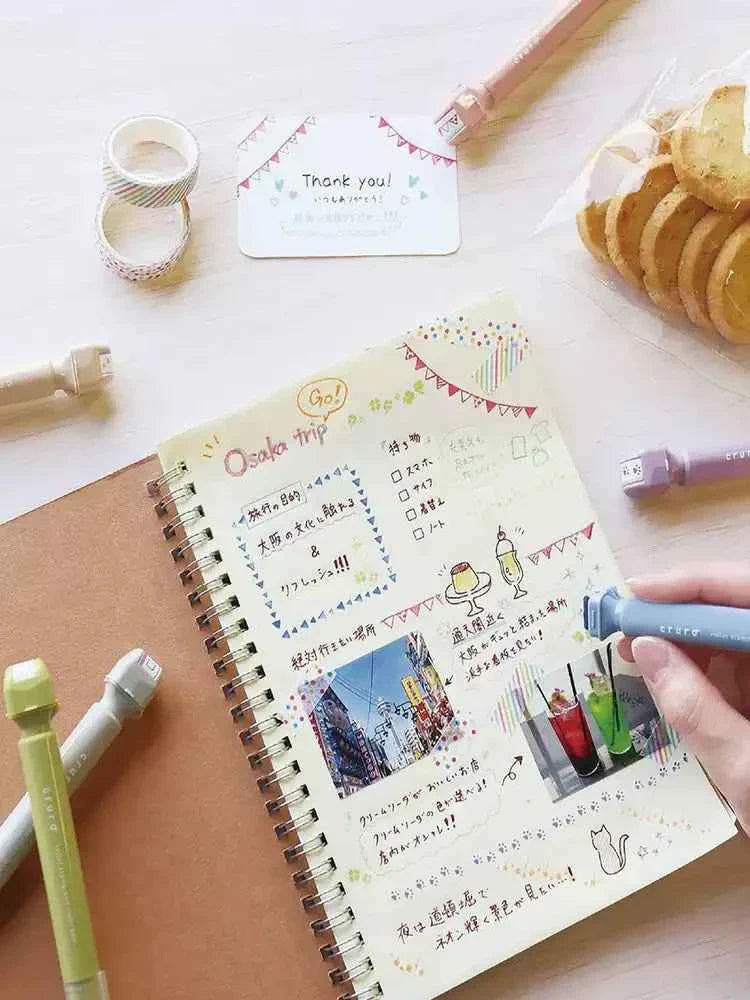 cruro
Thank you!
いつもありがとう！
Go!
Osaka trip
旅行の目的
大阪の文化に触れる
&
リフレッシュ!!!
持ち物
スマホ
サイフ
着替え
ノート
絶対行きたい場所
通天閣近く
大阪がギュッと詰まった場所
派手な看板を見たい！
クリームソーダがおいしいお店
クリームソーダの色が選べる！
店内がオシャレ!!
夜は道頓堀で
ネオン輝く景色が見たい…！
cruro
cruro
cruro
cruro